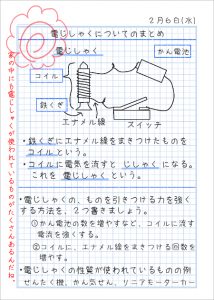 2月6日(水)
電じしゃくについてのまとめ
電じしゃく
かん電池
コイル
鉄くぎ
エナメル線
スイッチ
・鉄くぎにエナメル線をまきつけたものを
コイルという。
・コイルに電気を流すと じしゃくになる。
これを 電じしゃくという。
・電じしゃくの、ものを引きつける力を強く
する方法を、2つ書きましょう。
①かん電池の数を増やすなど、コイルに流す
電流を強くする。
②コイルに、エナメル線をまきつける回数を
増やす。
・電じしゃくの性質が使われているものの例
せんたく機、かん気せん、リニアモーターカー
家の中にも電じしゃくが使われているものがたくさんあるんだね。